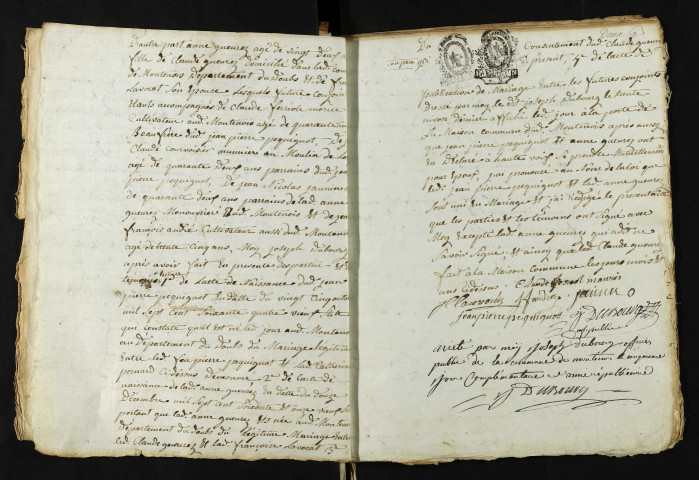 D'autre part anne quenrey agé de vingt deuf a
fille de Claude quenrey domicilié dans lad. com
de Montenois Département du Doubs et de f
Lavocat son Epouse lesquels future conjoin
étants accompagnés de Claude
Cultivateur aud Montenois agé de quarante
Beaufrère dud jean pierre pequignot, De
Claude Courvoisier meunier au Moulin de
agé de quarante deuf ans parrains dud jean
pierre pequignot, De jean Nicolas jannin
de quarante deuf ans parrains de lad anne
quenrey Monnoirier dud Montenois et de jea
françois andré Cultivateur aussi dud Monteno
agé de trente cinq ans, Moy joseph dubourg
après avoir fait en presence des parties et de
témoins 1° lecture de lacte de Naissance dud jean
pierre pequignot en datte du vingt cinq octob
mil sept cent soixante quatre neuf
qui constate quil est né led jour aud Montenois
Département du doubs du Mariage légitime
entre led jean pierre pequignot et lad Catherine
ponard ci dessus dénommé 2° de lacte de
naissance de lad anne quenrey en datte du douze
Décembre mil sept cent soixante et onze neuf
portant que lad anne quenrey est née aud Monteno
Département du doubs du légitime Mariage entre
led Claude quenrey et lad françoise Lavocat 3°
Du Consentement dud Claude quenrey
présent, 5° de lacte de
publication de Mariage entre les futures conjoints
dressé par moy led joseph dubourg le trente
nivose dernier affiché led jour à la porte de
La Maison commune dud Montenois après aussy
que jean pierre pequignot et anne quenrey ont
Déclaré à haute voix se prendre Mutuellement
pour Epoux, jai prononcé au Nom de la loi que
led jean pierre pequignot et lad anne quenrey
sont unis en Mariage et jai rédigé le présent acte
que les parties et les témoins ont signé avec
Moy excepté lad anne quenrey qui a dit ne
savoir signé, et ainsy que led Claude quenrey
fait à la Maison Commune les jours mois et
ans ci dessus, Claude
andré jannin
jean pierre pequignot J Dubourg
off public
arreté par moy joseph Dubourg officier
public de la commune de montenois
jour Complémentaire anne republicaine
J Dubourg